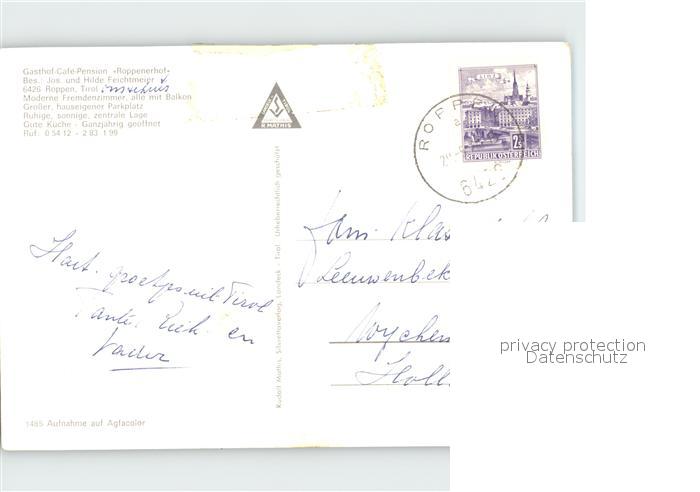 Gasthof-Café-Pension »Roppenerhof«
Bes.: Jos. und Hilde Feichtmeier
6426 Roppen, Tirol
Moderne Fremdenzimmer, alle mit Balkon
Großer, hauseigener Parkplatz
Ruhige, sonnige, zentrale Lage
Gute Küche - Ganzjährig geöffnet
Ruf: 0 54 12 - 2 83 1 99
R. MATHIS
LINZ
2S
REPUBLIK ÖSTERREICH
ROPPEN
6426
Fam. Klas
Leeuwenbek
Wychen
Holl
Hart. groetjes uit Tirol
Tante Riek en
Vader
Rudolf Mathis, Silvrettaverlag, Landeck - Tirol. Urheberrechtlich geschützt
1485 Aufnahme auf Agfacolor
privacy protection
Datenschutz